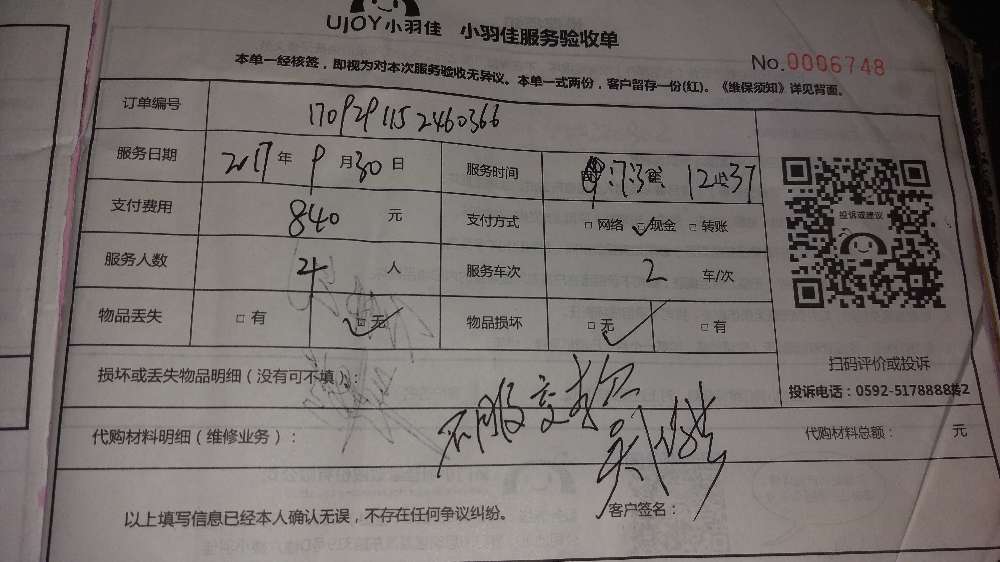 UJOY小羽佳 小羽佳服务验收单
No.0006748
本单一经核签，即视为对本次服务验收无异议。本单一式两份，客户留存一份(红)。《维保须知》详见背面。
订单编号 1709291152460366
服务日期 2017 年 9 月 30 日 服务时间 12 37
支付费用 840 元 支付方式 □ 网络 □ 现金 □ 转账
服务人数 4 人 服务车次 2 车/次
物品丢失 □ 有 □ 无 物品损坏 □ 无 □ 有
投诉或建议
扫码评价或投诉
投诉电话：0592-5178888转2
损坏或丢失物品明细（没有可不填）：
代购材料明细（维修业务）：
代购材料总额： 元
以上填写信息已经本人确认无误，不存在任何争议纠纷。 客户签名：